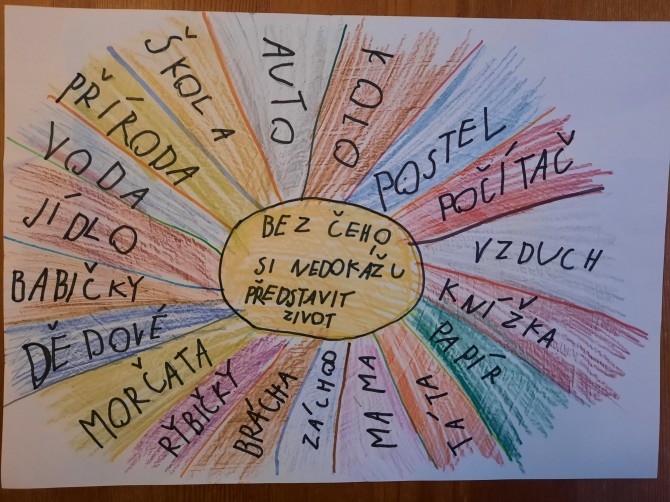 BEZ ČEHO
SI NEDOKÁŽU
PŘEDSTAVIT
ZIVOT
ŠKOLA
AUTO
KOLO
POSTEL
POČÍTAČ
VZDUCH
KNÍŽKA
PAPÍR
TÁTA
MAMA
ZÁCHOD
BRÁCHA
RYBIČKY
MORČATA
DĚDOVÉ
BABIČKY
JÍDLO
VODA
PŘÍRODA